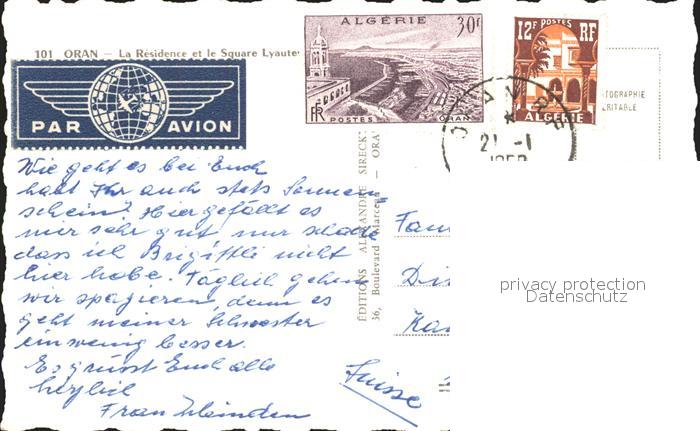 ALGÉRIE
30f
RF
POSTES
ORAN
12F POSTES RF
ALGÉRIE
101 ORAN – La Résidence et le Square Lyaute
PAR AVION
21 -1
TOGRAPHIE
ÉRITABLE
Wie geht es bei Euch
habt Ihr auch stets Sonnen-
schein? Hier gefällt es
mir sehr gut nur schade
dass ich Brigittli nicht
hier habe. Täglich gehen
wir spazieren, denn es
geht meiner Schwester
ein wenig besser.
Es grüsst Euch alle
herzlich
Frau
ÉDITIONS ALEXANDRE SIRECK
36, Boulevard Marceau – ORA
Fam
Di
Ka
Suisse
privacy protection
Datenschutz